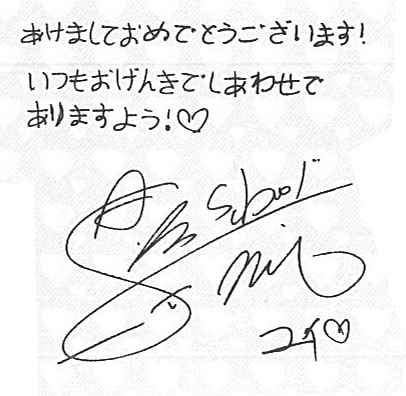 あけましておめでとうございます!
いつもおげんきでしあわせで
ありますよう!♡
School
ユイ♡